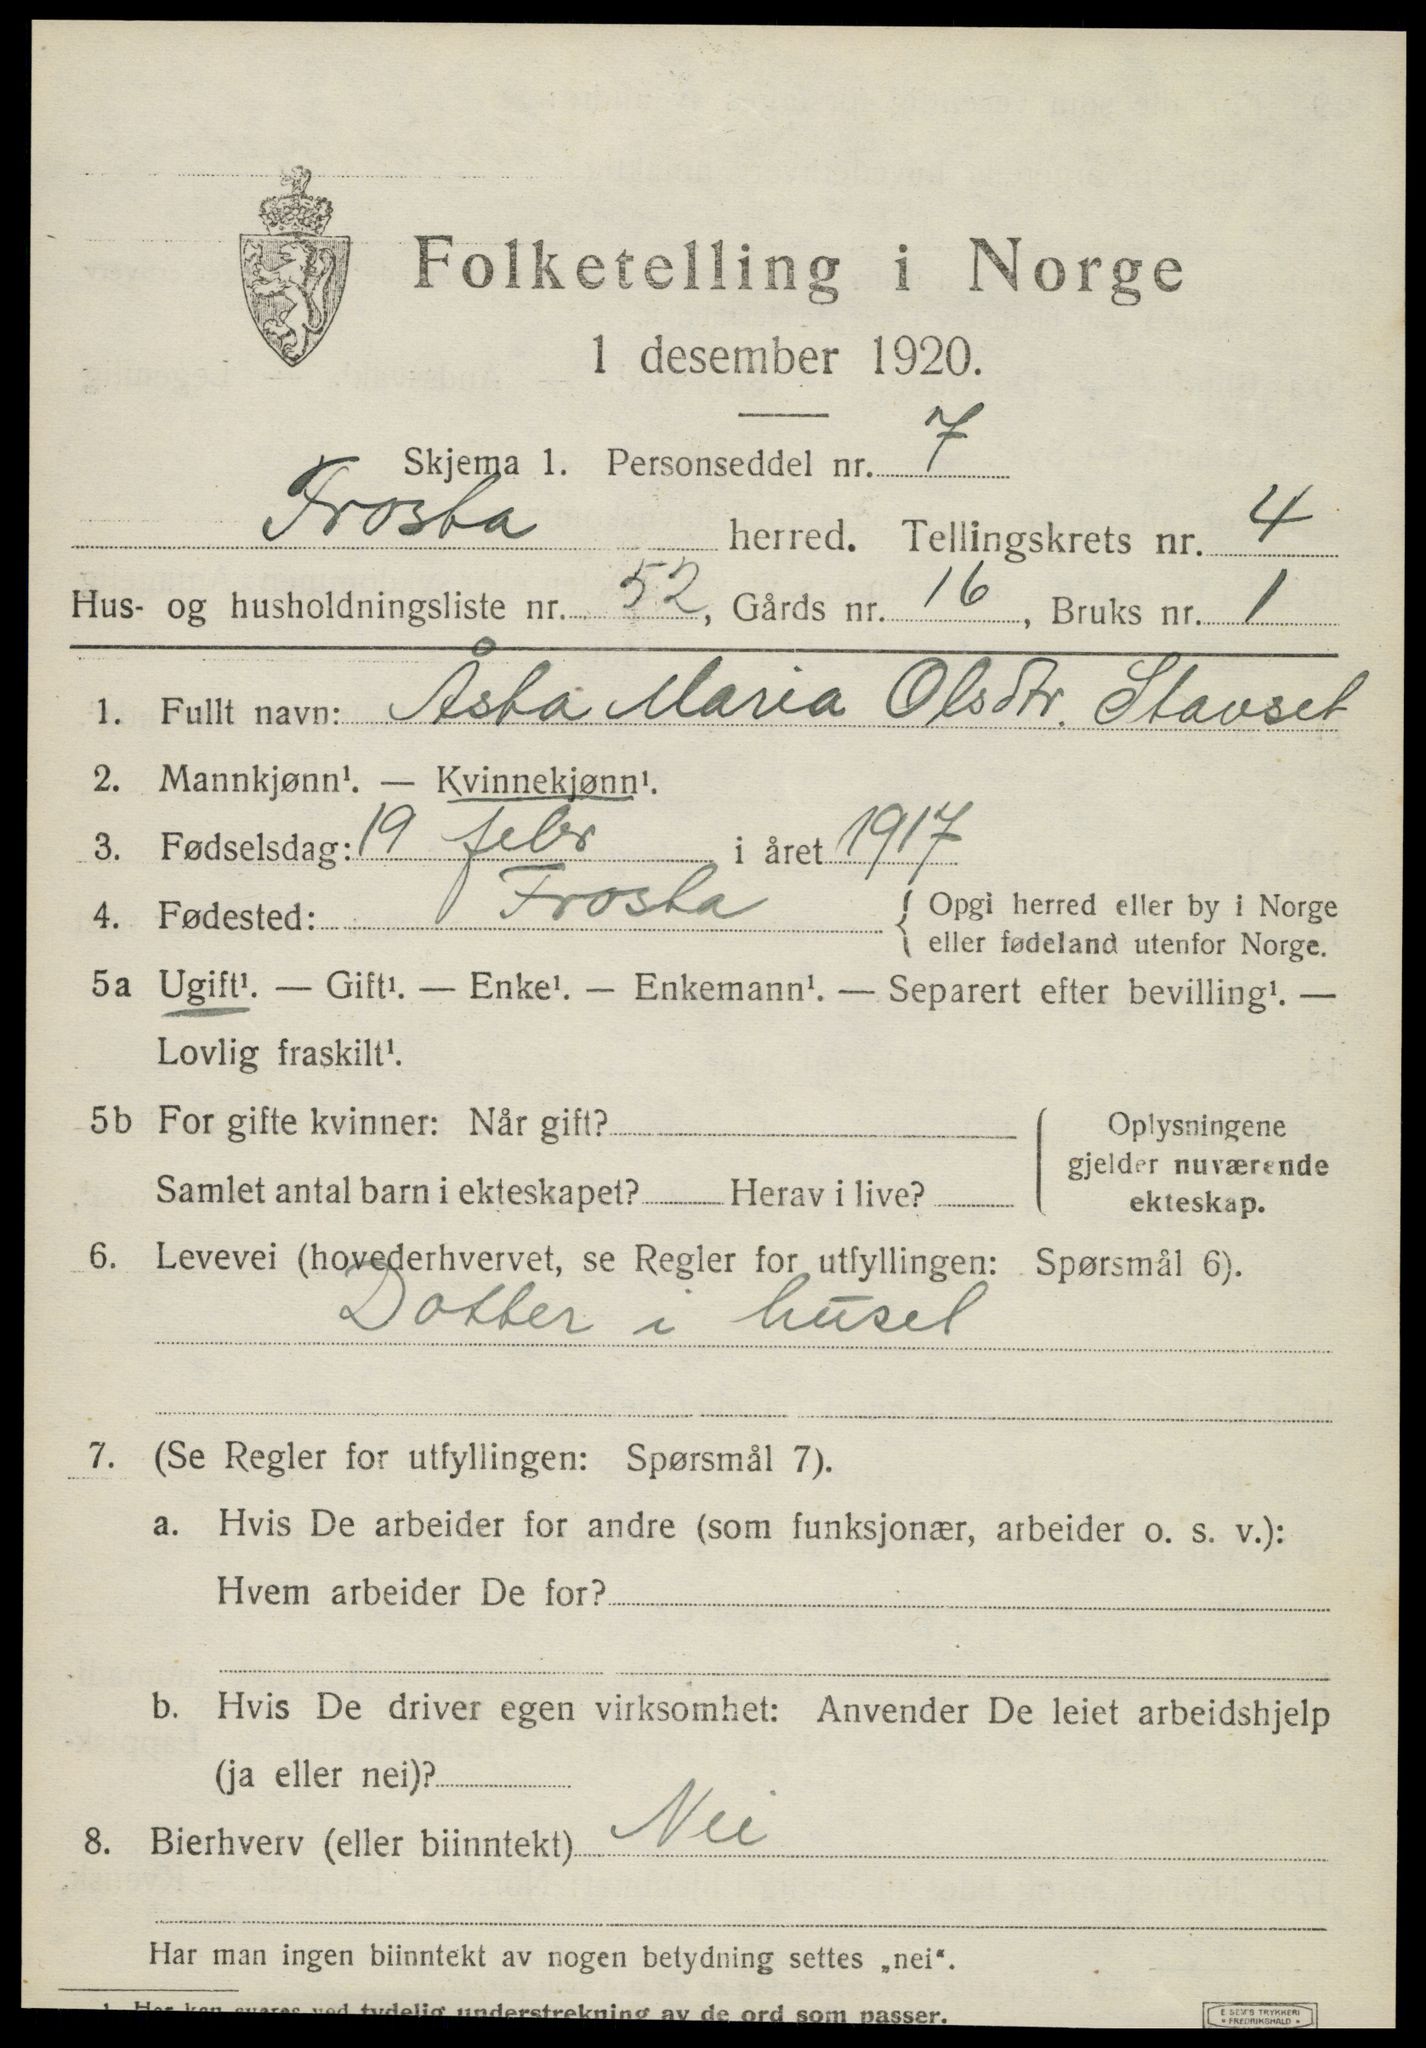 Folketelling i Norge
1 desember 1920.
Skjema 1. Personseddel nr. 7
Frosta herred. Tellingskrets nr. 4
Hus- og husholdningsliste nr. 52, Gårds nr. 16, Bruks nr. 1
1. Fullt navn: Åsta Maria Olsdtr. Stavset
2. Mannkjønn¹. — Kvinnekjønn¹.
3. Fødselsdag: 19 febr i året 1917
4. Fødested: Frosta { Opgi herred eller by i Norge
eller fødeland utenfor Norge.
5a Ugift¹. — Gift¹. — Enke¹. — Enkemann¹. — Separert efter bevilling¹. —
Lovlig fraskilt¹.
5b For gifte kvinner: Når gift?
Samlet antal barn i ekteskapet? Herav i live?
Oplysningene
gjelder nuværende
ekteskap.
6. Levevei (hovederhvervet, se Regler for utfyllingen: Spørsmål 6).
Dotter i huset
7. (Se Regler for utfyllingen: Spørsmål 7).
a. Hvis De arbeider for andre (som funksjonær, arbeider o. s. v.):
Hvem arbeider De for?
b. Hvis De driver egen virksomhet: Anvender De leiet arbeidshjelp
(ja eller nei)?
8. Bierhverv (eller biinntekt) Nei
Har man ingen biinntekt av nogen betydning settes „nei“.
1 Her kan svares ved tydelig understrekning av de ord som passer.
E SEM'S TRYKKERI
FREDRIKSHALD